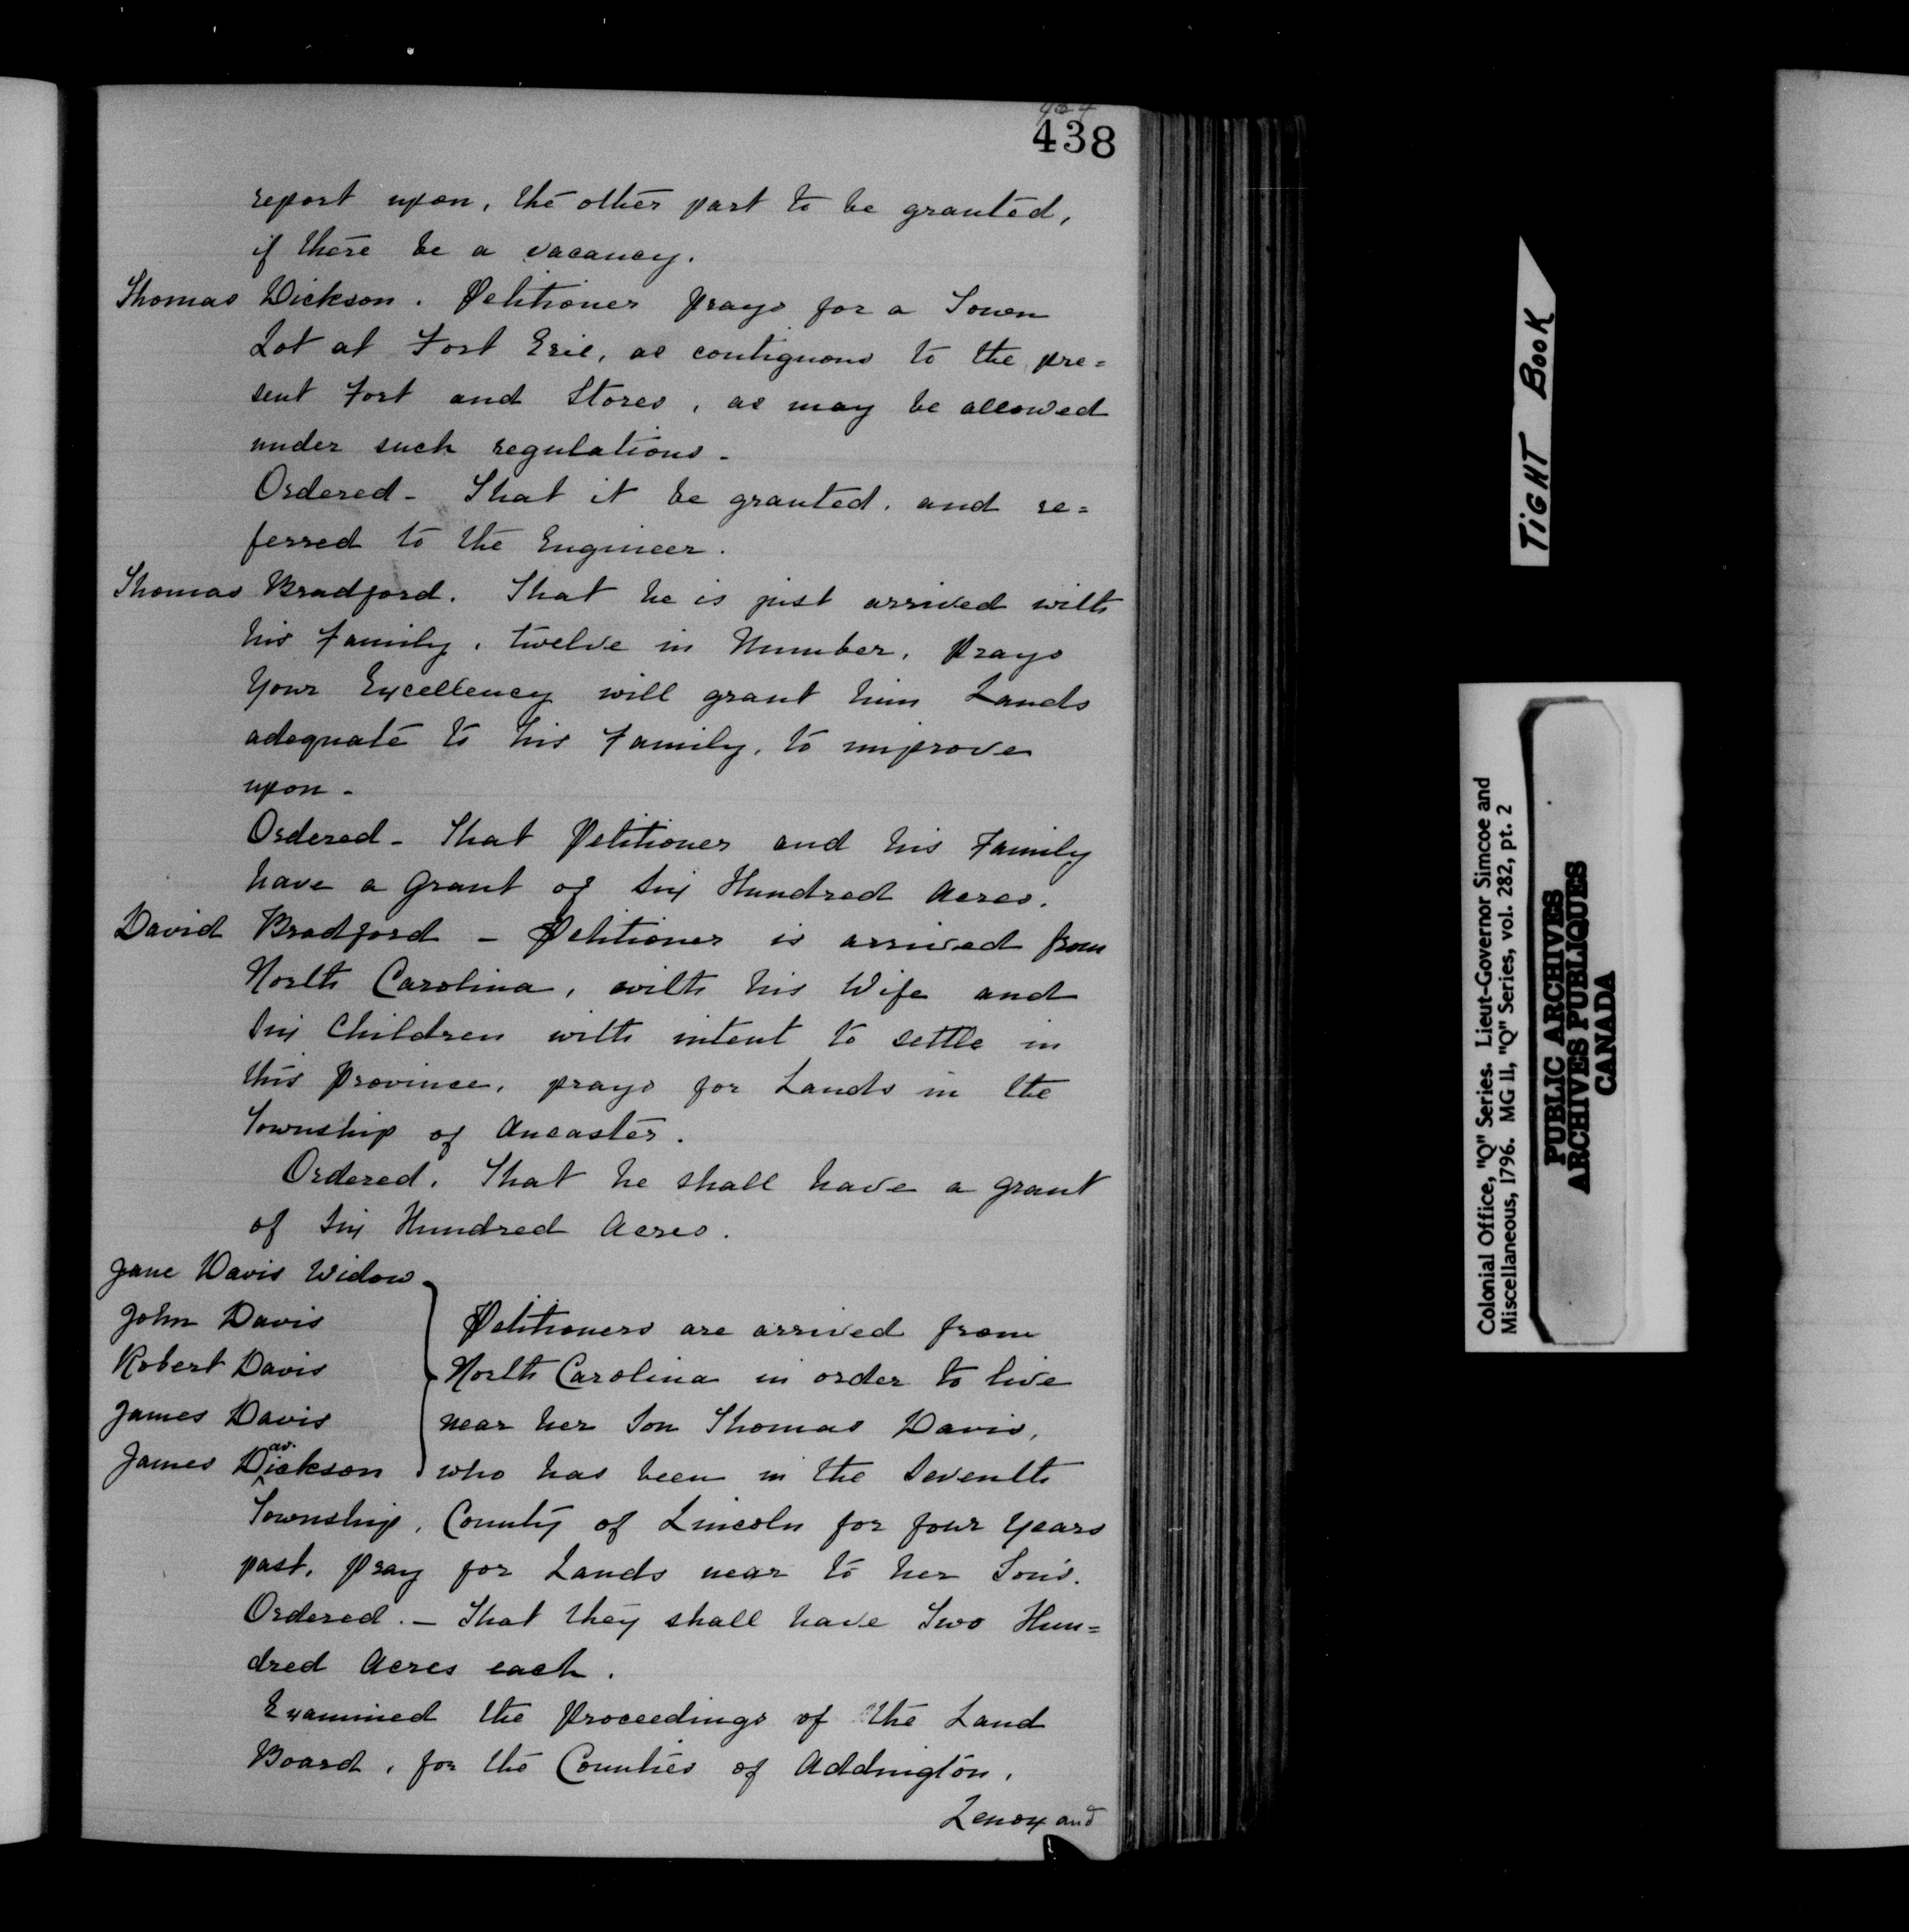 438
report upon, the other part to be granted,
if there be a vacancy.
Thomas Dickson. Petitioner prays for a Town
Lot at Fort Erie, as contiguous to the pre=
sent Fort and Stores, as may be allowed
under such regulations.
Ordered - That it be granted, and re=
ferred to the Engineer.
Thomas Bradford. That he is just arrived with
his Family, twelve in Number, Prays
Your Excellency will grant him Lands
adequate to his Family, to improve
upon -
Ordered - That Petitioner and his Family
have a Grant of Six Hundred Acres.
David Bradford - Petitioner is arrived from
North Carolina, with his Wife and
Six Children with intent to settle in
this Province, prays for Lands in the
Township of Ancaster.
Ordered. That he shall have a grant
of Six Hundred Acres.
Jane Davis Widow
John Davis
Robert Davis
James Davis
James Dickson
av.
Petitioners are arrived from
North Carolina in order to live
near her Son Thomas Davis,
who has been in the Seventh
Township, County of Lincoln for four Years
past, Pray for Lands near to her Son's.
Ordered. - That they shall have Two Hun=
dred Acres each.
Examined the Proceedings of the Land
Board, for the Counties of Addington,
Lenox and
TIGHT BOOK
Colonial Office, "Q" Series. Lieut-Governor Simcoe and
Miscellaneous, 1796. MG 11, "Q" Series, vol. 282, pt. 2
PUBLIC ARCHIVES
ARCHIVES PUBLIQUES
CANADA